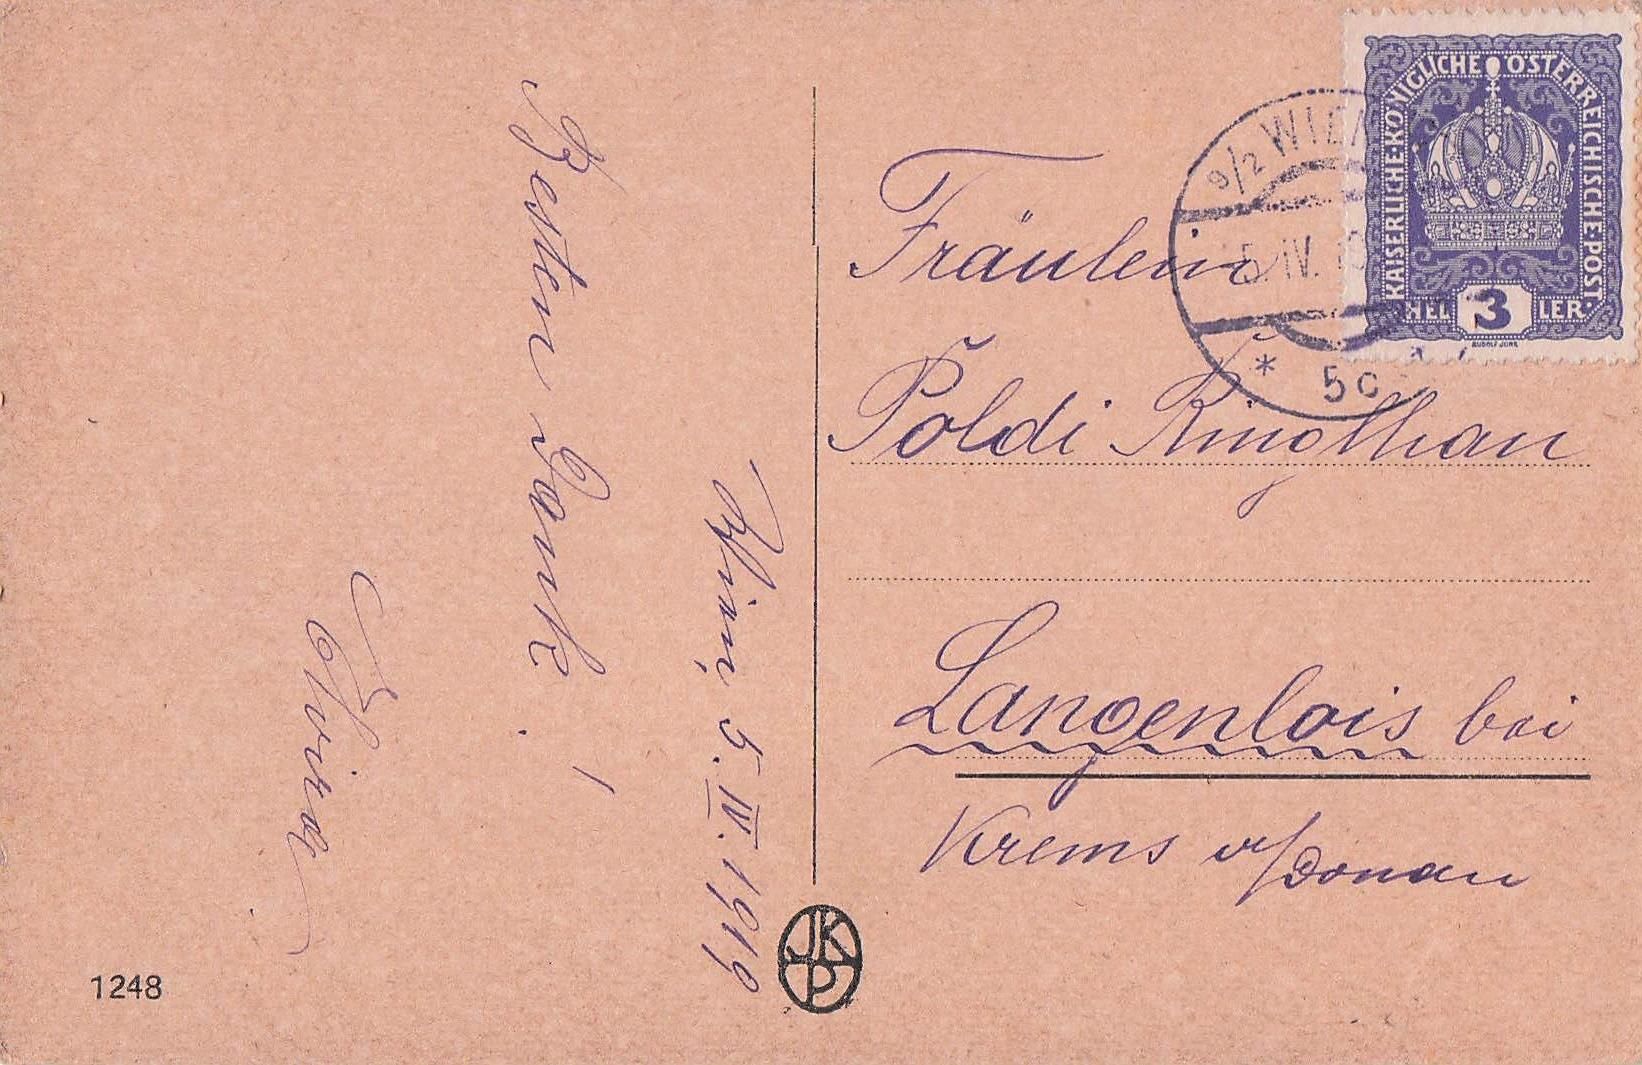 Besten Dank!
Wien, 5. IV. 1919
1248
JKP
9/2 WIEN
5. IV. 19
* 5c
KAISERLICHE·KÖNIGLICHE ÖSTERREICHISCHE·POST·
HEL 3 LER
RUDOLF JUNK
Fräulein
Poldi Ringlhan
Langenlois bei
Krems a/Donau